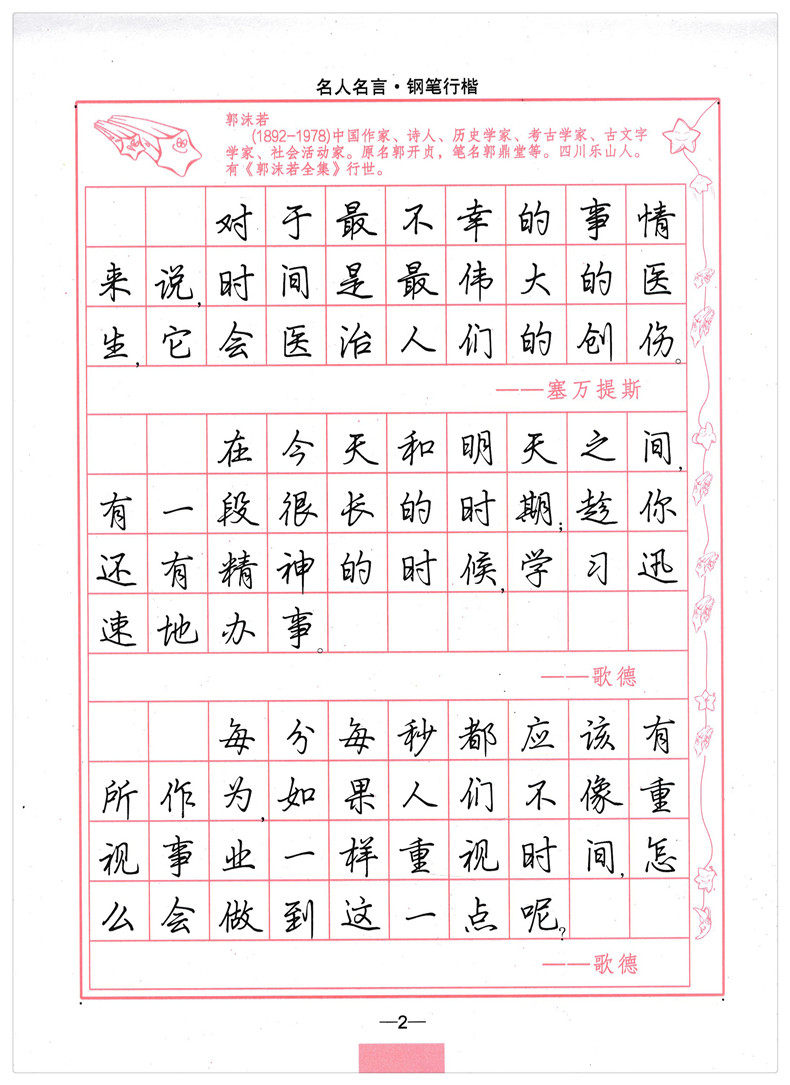 名人名言·钢笔行楷
郭沫若
(1892-1978)中国作家、诗人、历史学家、考古学家、古文字
学家、社会活动家。原名郭开贞，笔名郭鼎堂等。四川乐山人。
有《郭沫若全集》行世。
对于最不幸的事情
来说，时间是最伟大的医
生，它会医治人们的创伤。
——塞万提斯
在今天和明天之间，
有一段很长的时期；趁你
还有精神的时候，学习迅
速地办事。
——歌德
每分每秒都应该有
所作为，如果人们不像重
视事业一样重视时间，怎
么会做到这一点呢？
——歌德
—2—